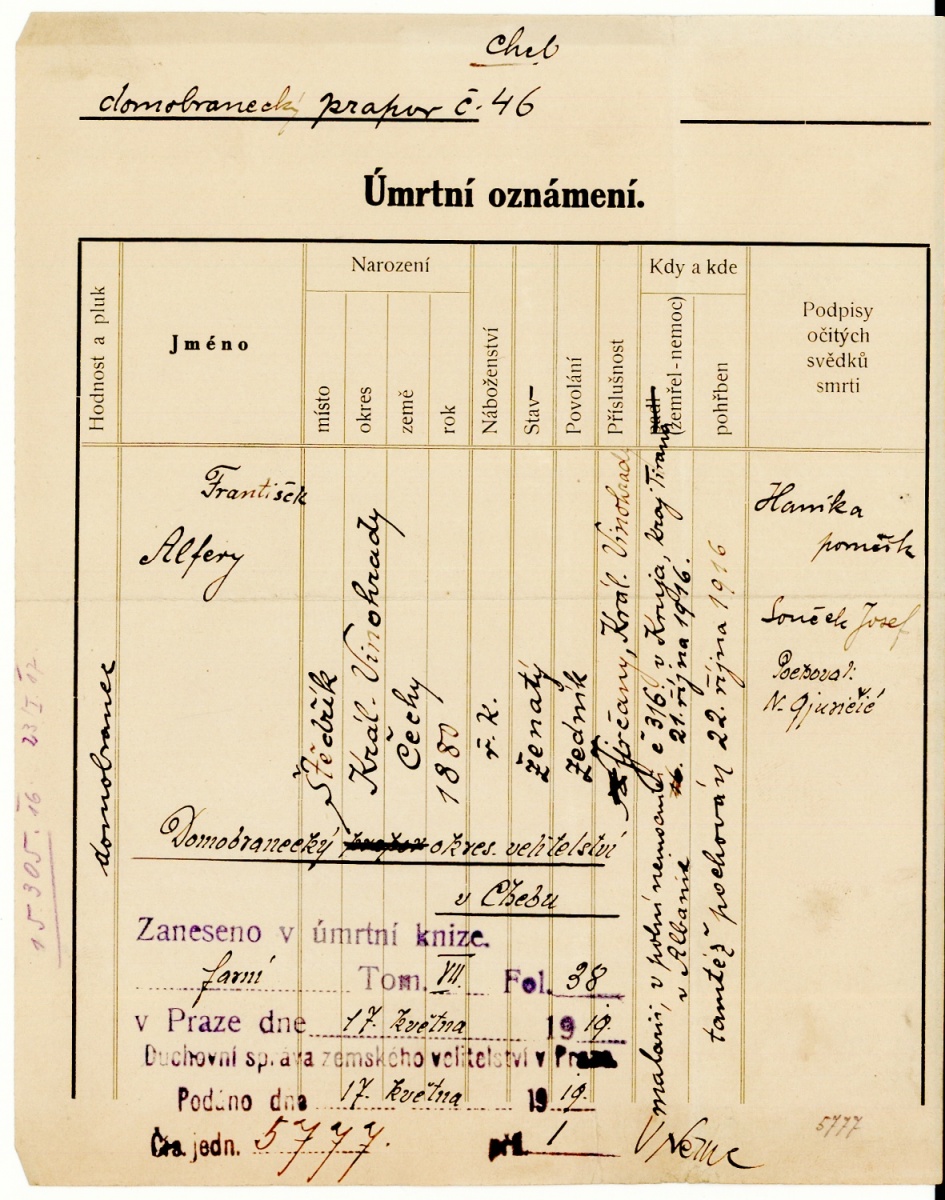 Cheb
domobranecký prapor č. 46
Úmrtní oznámení.
Hodnost a pluk
Jméno
Narození
místo
okres
země
rok
Náboženství
Stav
Povolání
Příslušnost
Kdy a kde
(zemřel-nemoc)
pohřben
Podpisy
očitých
svědků
smrti
domobranec
František
Alfery
Štědřík
Král. Vinohrady
Čechy
1880
ř. k.
ženatý
zedník
Jirčany, Král. Vinohrady
malarii, v polní nemocnici č 316. v Kruja, kraj Tirana
v Albanii 21. října 1916.
tamtéž pochován 22. října 1916
Hanika
pomešk
Souček Josef
Pochoval:
N. Gjuričić
Domobranecký okres. velitelství
v Chebu
Zaneseno v úmrtní knize.
farní Tom. VII. Fol. 38
v Praze dne 17. května 1919.
Duchovní správa zemského velitelství v Praze.
Podáno dne 17. května 1919.
Čís. jedn. 5777. příl. 1
5777
15305.16 23/I 17